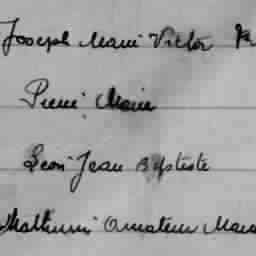 Joseph Marie Victor
Pierre Marie
Leon Jean Baptiste
Mathurin Amateur Marie